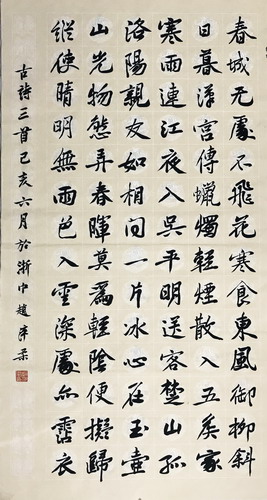 春城无處不飛花寒食東風御柳斜
日暮漢宮傳蠟燭輕煙散入五矦家
寒雨連江夜入吳平明送客楚山孤
洛陽親友如相問一片冰心在玉壺
山光物態弄春暉莫為輕陰便擬歸
縱使晴明無雨色入雲深處亦霑衣
古詩三首己亥六月於浙中趙